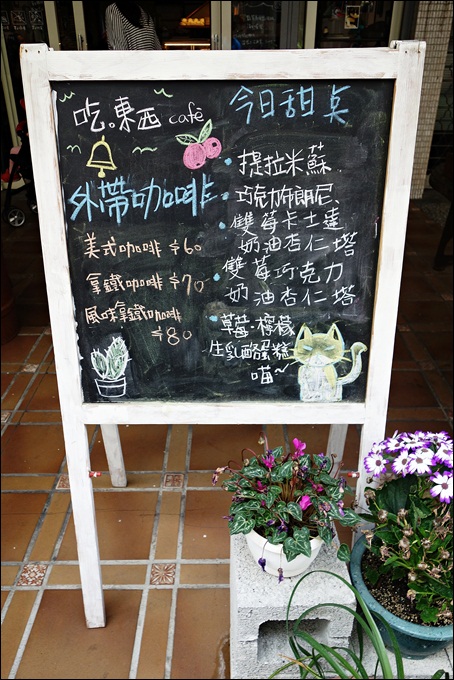 吃。東西 cafè
外帶咖啡
美式咖啡 $60
拿鐵咖啡 $70
風味拿鐵咖啡
$80
今日甜點
提拉米蘇、
巧克力布朗尼、
雙莓卡士達
奶油杏仁塔
雙莓巧克力
奶油杏仁塔
草莓·檸檬
生乳酪蛋糕
喵~